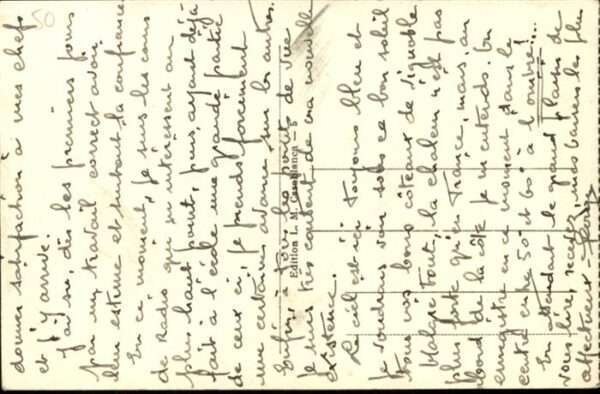 donner satisfaction à mes chefs
et j'y arrive.
J'ai su, dès les premiers jours
par un travail correct avoir
leur estime et surtout la confiance
En ce moment, je suis les cours
de Radio qui m'intéressent au
plus haut point, puis, ayant déjà
fait à l'école une grande partie
de ceux ci, je prends forcément
une certaine avance sur les autres.
Enfin, à tous les points de vue
je suis très content de ma nouvelle
existence.
Le ciel est ici toujours bleu et
je voudrais voir sous ce bon soleil
tous vos bons côteaux de vignoble
Malgré tout, la chaleur n'est pas
plus forte qu'en France, mais au
bord de la côte je m'entends. On
enregistre en ce moment dans le
centre entre 50° et 60° à l'ombre!...
En attendant le grand plaisir de
vous lire, recevez, mes baisers les plus
affectueux
Edition L. M. Casablanca - 5
50